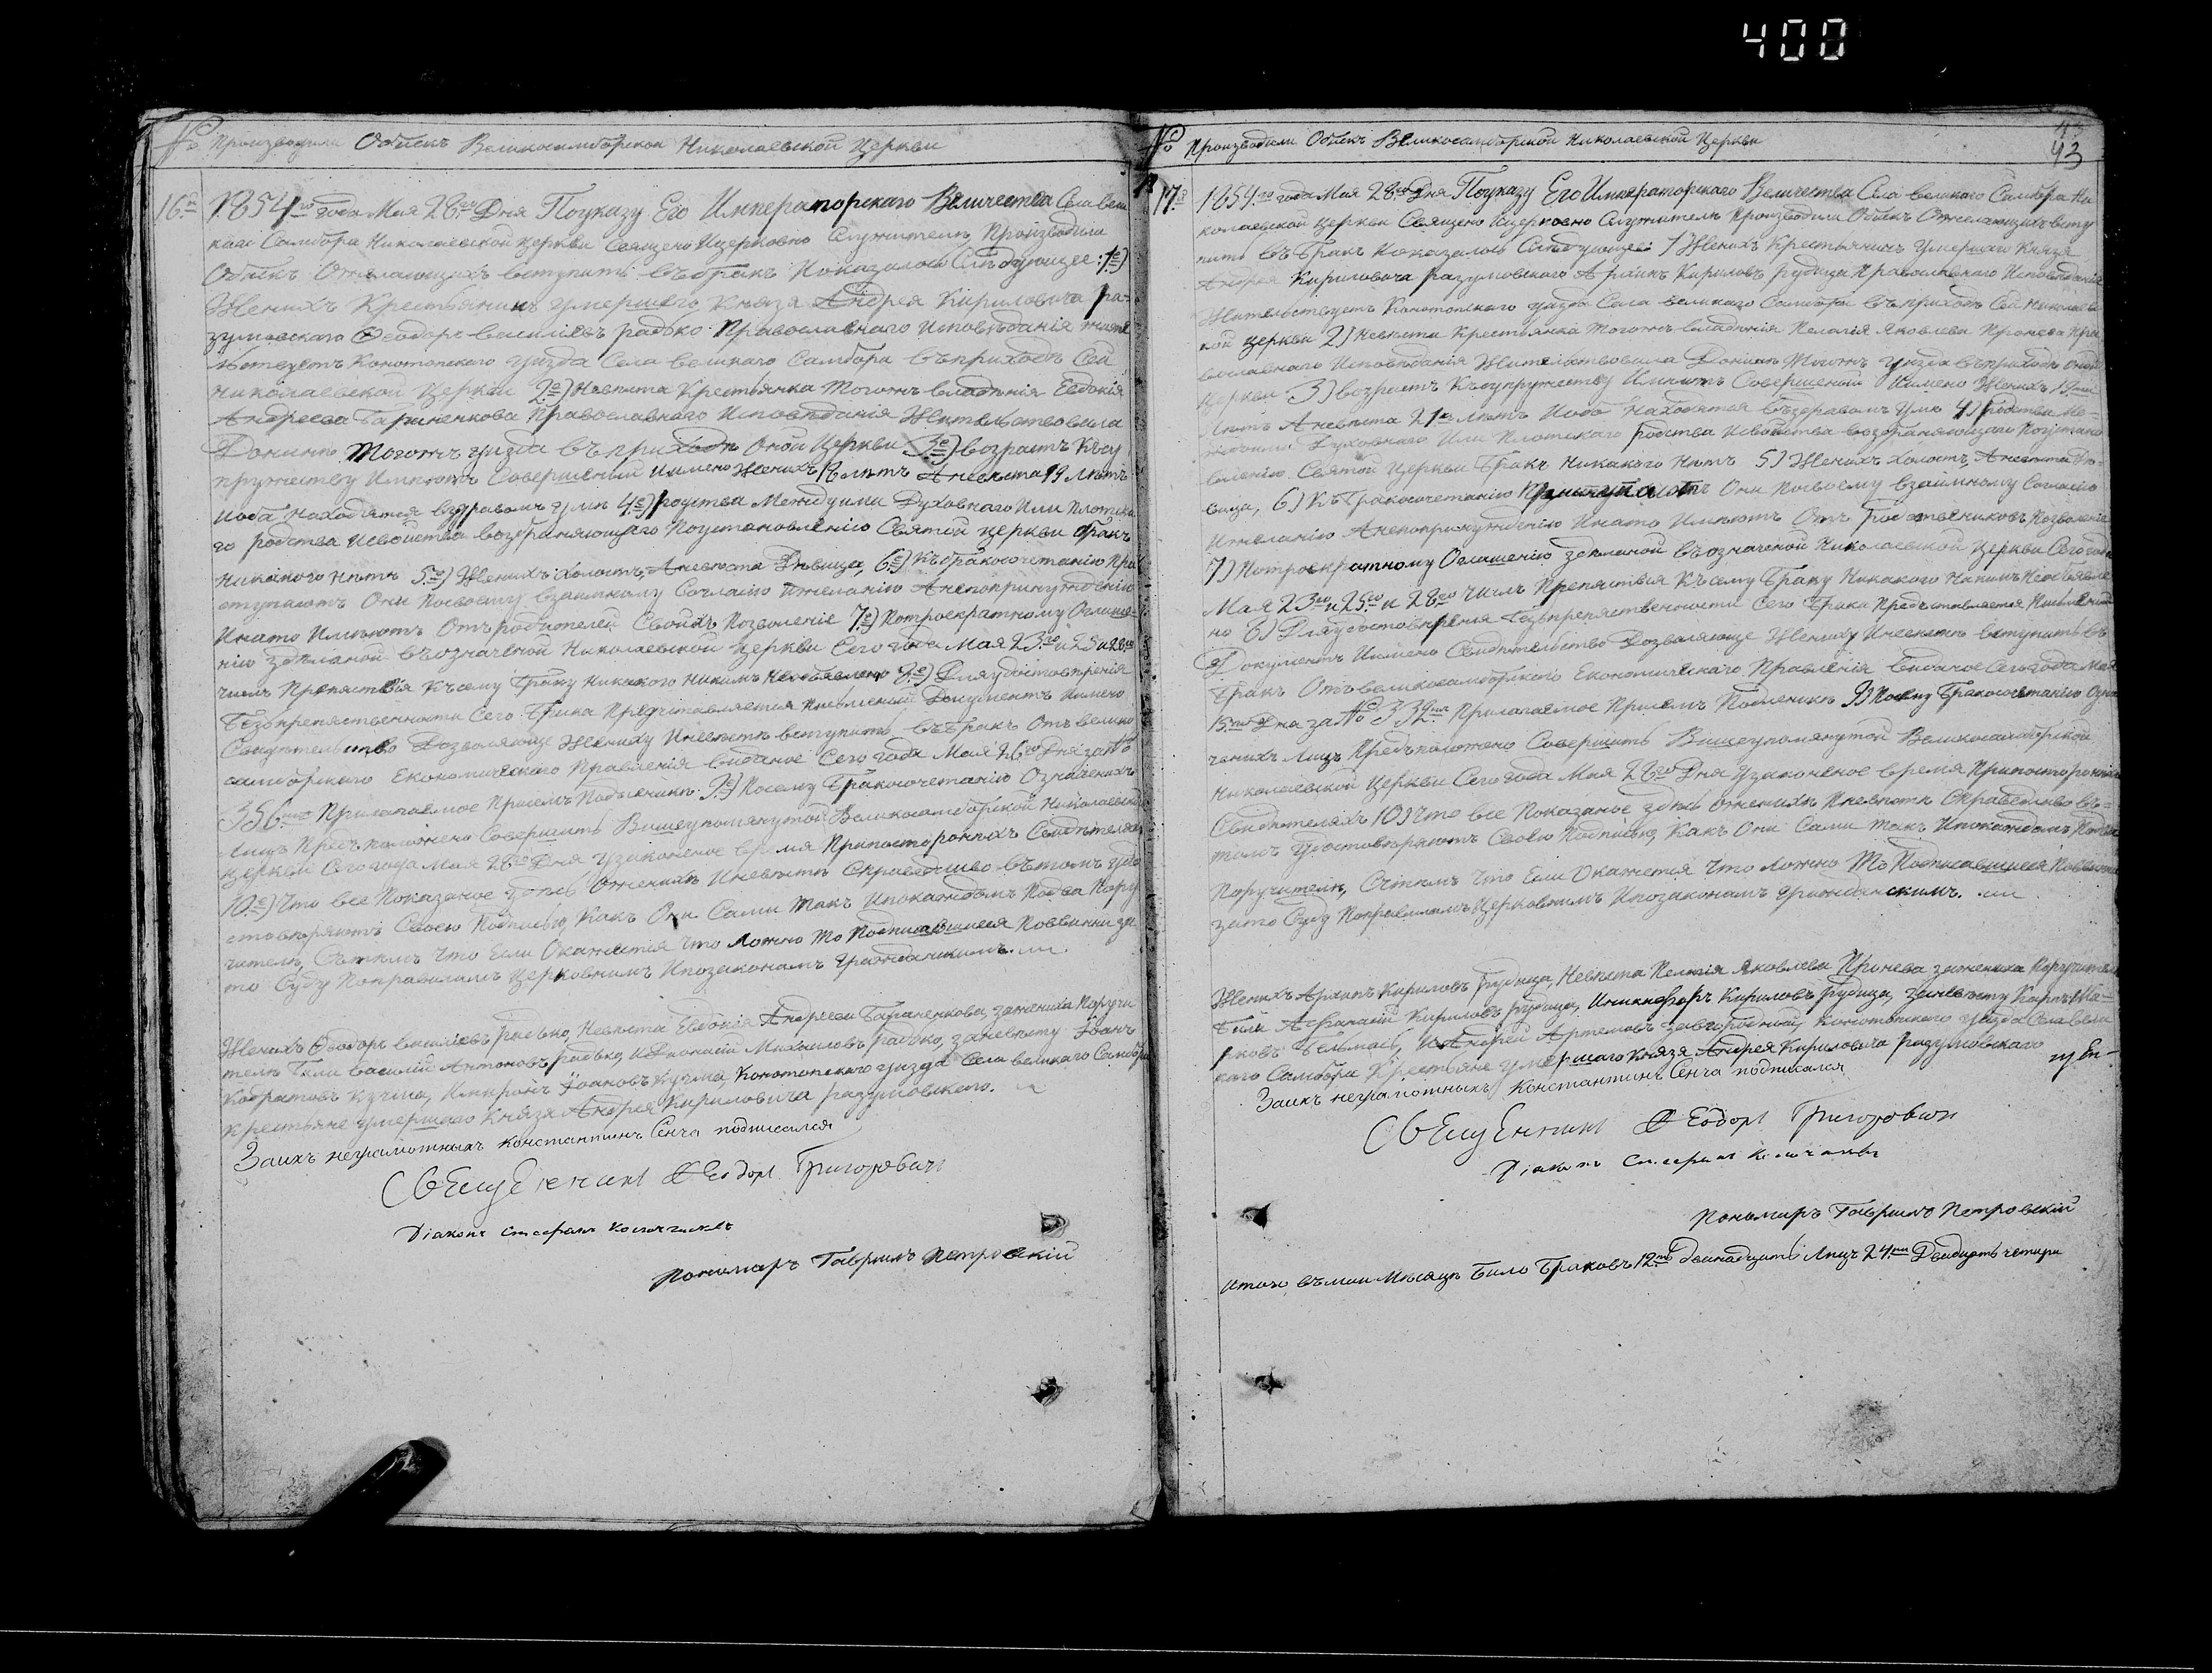 400
№ Производили Обыскъ Великосамборской Николаевской Церкви
16й 1854го года Мая 28го Дня Поуказу Его Императорскаго Величества Села вели
каго Самбора Николаевской церкви Священо Ицерковно Служителы Производили
Обыскъ Ожелающихъ вступить въбракъ Ипоказалось Следующее: 1е)
Женихъ Крестьянинъ умершаго Князя Андрея Кириловича ра-
зумовскаго Феодоръ василіевъ радько Православнаго Исповѣданія жите
льствуетъ Конотопского уѣзда Села великаго Самбора въприходѣ Сей
николаевской Церкви 2е) Невѣста Крестьянка Тогожъ владѣнія Евдокія
Андреева Православнаго Исповѣданія Жительствовала
Донынѣ Тогожъ уѣзда въприходѣ Оной Церкви 3е) возрастъ Ксу
пружеству Имѣютъ Совершений Имено Женихъ 18 лѣтъ Аневѣста 19 Лѣтъ
Иоба Находятся вздравомъ умѣ 4е) родства Междуими Духовнаго Или Плотска
го родства Исвойства возбраняющаго Поустановлению Святой церкви бракъ
Никакого нѣтъ 5е) Женихъ Холостъ, Аневѣста Дѣвица, 6е) Къбракосочетанію При
ступаютъ Они Посвоему взаимному Согласію Ижеланію Анепопринужденію
Инато Имѣютъ Отъродителей Своихъ Позволеніе 7е) Потроекратному Оглаше-
нію здѣланой въозначеной Николаевской церкви Сего года Мая 23го и 25 и 28го
числъ Препяствія Ксему Браку Никакого Никимъ Необявлено 8е) Дляудостовѣренія
Безпрепяственности Сего Брака Представляется Письменый Документъ Имено
Свидѣтельство Дозволяюще Жениху Иневѣстѣ вступить въбракъ Отъ велико
самборского Економического Правленія виданое Сего года Мая 26го Дня за №
356мъ Прилагаемое Присемъ Подленикъ 9е) Посему Бракосочетанію Означенихъ
Лицъ Предположено Совершить Вишеупомянутой Великосамборской Николаевской
церкви Сего года Мая 28го Дня узаконеное время Припосторонихъ Свидѣтеляхъ
10е) Что все Показаное здѣсь Оженихѣ Иневѣстѣ Справедливо вътомъ удо
стовѣряютъ Своею Подписью Какъ Они Сами такъ Ипокаждомъ Подва Пору
чителя, Сътемъ что Если Окажется что ложно то Подписавшиеся Повинни за
то Суду Поправиламъ церковнимъ Ипозаконамъ Гражданскимъ.
Женихъ Феодоръ василіевъ радько, Невѣста Евдокія Андреева зажениха Поручи
тели Били василій Антоновъ радько, Михаиловъ радько, заневѣсту Іоанъ
Кодратовъ Кучма, Имиронъ Іоановъ Кучма, Конотопского уѣзда Села великаго Самбора
крестьяне умершаго Князя Андрея Кириловича разумовскаго.
Заихъ неграмотныхъ Константинъ Сенча подписался
Священникъ Феодоръ Григоровичъ
Діаконъ Стефанъ
Пономаръ Гавриилъ Петровскій
№ Производили Обыскъ Великосамборской Николаевской Церкви
43
17й 1854го года Мая 28го Дня Поуказу Его Императорскаго Величества Села великого Самбора Ни
колаевской церкви Священо Ицерковно Служителы Производили Обыскъ Ожелающихъ всту
пить въ Бракъ Ипоказалось Следующее: 1) Женихъ Крестьянинъ умершаго Князя
Андрея Кириловича разумовского Архипъ Кириловъ рудица Православнаго Исповѣданія
Жительствуетъ Конотопского уѣзда Села великаго Самбора въприходѣ Сей Николаевс
кой церкви 2) Невѣста Крестьянка Тогожъ владѣнія Пелагія Яковлева Пронева Пра
вославного Исповѣданія Жительствовала Донынѣ Тогожъ уѣзда въприходѣ Оной
Церкви 3) возрастъ Късупружеству Имѣютъ Совершений Имено Женихъ 19
Лѣтъ Аневѣста 21 лѣтъ Иоба Находятся въздравомъ умѣ 4) родства Ме-
ждуими Духовного Или Плотскаго родства Исвойства возбраняющаго Поустано
влению Святой Церкви Бракъ Никакого Нѣтъ 5) Женихъ Холостъ, Аневѣста Дѣ-
вица, 6) КъБракосочетанію Приступаютъ Они Посвоему взаимному Согласію
Ижеланію Анепопринужденію Инато Имѣютъ Отъ родственниковъ Позволеніе
7) Потроекратному Оглашенію зделаной въозначеной Николаевской Церкви Сего года
Мая 23го и 25го и 28го числъ Препяствія Късему Браку Никакого Никимъ Необъявле
но 8) Дляудостовѣренія Безпрепяственности Сего Брака Представляется Письменый
Документъ Имено Свидѣтельство Дозволяюще Жениху Иневѣстѣ вступить въ
Бракъ Отъвеликосамборского Економического Правленія виданое Сего года Мая
15 Дня за № 332мъ Прилагаемое Присемъ Подленикъ 9) Посему Бракосочетанію Озна
ченихъ Лицъ Предположено Совершить Вишеупомянутой Великосамборской
Николаевской Церкви Сего года Мая 28го Дня узаконеное время Припостороннихъ
Свидѣтеляхъ 10) Что все Показаное здѣсь Оженихѣ Иневѣстѣ Справедливо въ-
томъ Удостовѣряютъ Своею Подписью, Какъ Они Сами такъ Ипокаждомъ Подва
Поручителя, Сътемъ Что Если Окажется что ложно То Подписавшиеся Повинни
зато Суду Поправиламъ Церковнимъ Ипозаконамъ гражданскимъ.
Женихъ Архипъ Кириловъ рудица, Невѣста Пелагія Яковлева Пронева зажениха Поручители
Били Афанасій Кириловъ рудица, Иникифоръ Кириловъ рудица, заневѣсту Карпъ Ма-
рковъ Бельмасъ, Иандрей Артемовъ завгородній, Конотопского уѣзда Села вели
каго Самбора Крестьяне умершаго Князя Андрея Кириловича разумовскаго
Заихъ неграмотныхъ Константинъ Сенча подписался
Священникъ Феодоръ Григоровичъ
Діаконъ Стефанъ
Пономаръ Гавриилъ Петровскій
Итого въмаи Мѣсяцѣ Било Браковъ 12ть Двенадцать Лицъ 24ри Двадцать четири